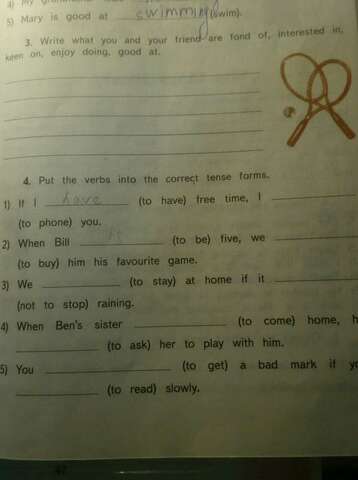 4) My
5) Mary is good at swimming (swim).
3. Write what you and your friend are fond of, interested in,
keen on, enjoy doing, good at.
4. Put the verbs into the correct tense forms.
1) If I have (to have) free time, I
(to phone) you.
2) When Bill is (to be) five, we
(to buy) him his favourite game.
3) We (to stay) at home if it
(not to stop) raining.
4) When Ben's sister (to come) home,
(to ask) her to play with him.
5) You (to get) a bad mark if
(to read) slowly.